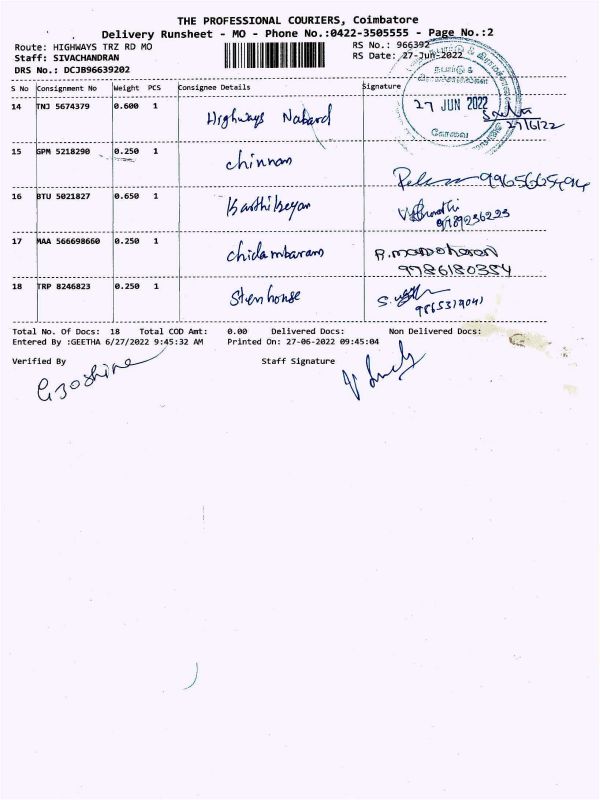 THE PROFESSIONAL COURIERS, Coimbatore
Delivery Runsheet - MO - Phone No.:0422-3505555 - Page No.:2
Route: HIGHWAYS TRZ RD MO RS No.: 966392
Staff: SIVACHANDRAN RS Date: 27-Jun-2022
DRS No.: DCJB96639202
S No Consignment No Weight PCS Consignee Details Signature
14 TNJ 5674379 0.600 1 Highways Nabard
நபார்டு &
27 JUN 2022
கோவை
27/6/22
15 GPM 5218290 0.250 1 chinnan
9965665494
16 BTU 5021827 0.650 1 Karthikeyan
9789236223
17 MAA 566698660 0.250 1 chidambaram R.manoharan
9786180354
18 TRP 8246823 0.250 1 Stenhouse
9865319041
Total No. Of Docs: 18 Total COD Amt: 0.00 Delivered Docs: Non Delivered Docs:
Entered By :GEETHA 6/27/2022 9:45:32 AM Printed On: 27-06-2022 09:45:04
Verified By Staff Signature